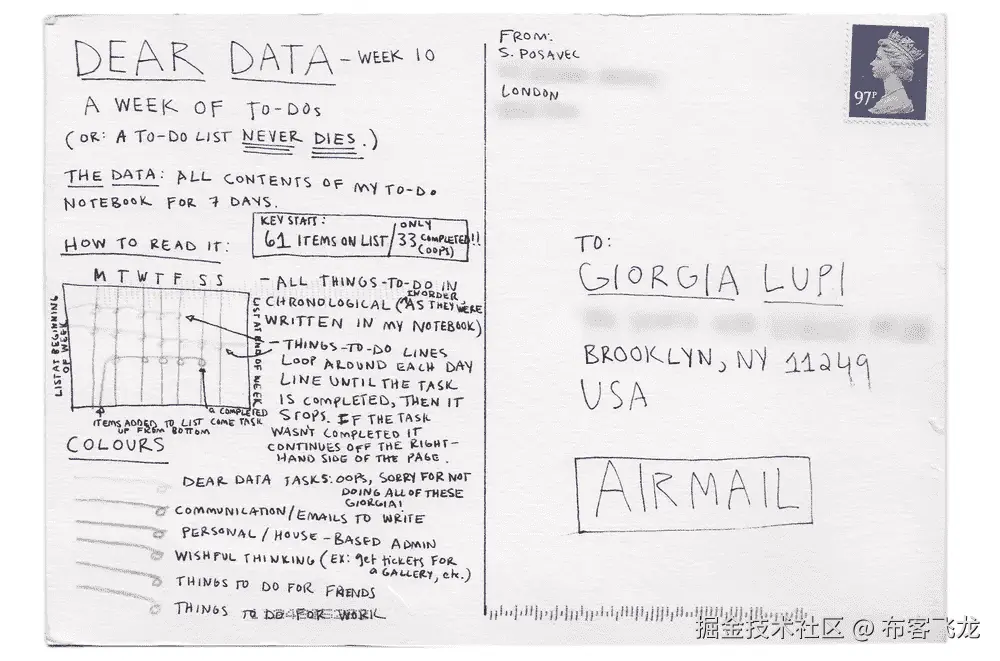 DEAR DATA - WEEK 10
A WEEK OF TO-DOS
(OR: A TO-DO LIST NEVER DIES.)
THE DATA: ALL CONTENTS OF MY TO-DO
NOTEBOOK FOR 7 DAYS.
KEY STATS:
61 ITEMS ON LIST / ONLY
33 COMPLETED!!
(OOPS)
HOW TO READ IT:
M T W T F S S
LIST AT BEGINNING
OF WEEK
LIST AT END OF WEEK
ITEMS ADDED TO LIST COME
UP FROM BOTTOM
a COMPLETED
TASK
- ALL THINGS-TO-DO IN
CHRONOLOGICAL (IN ORDER
AS THEY WERE
WRITTEN IN MY NOTEBOOK)
- THINGS-TO-DO LINES
LOOP AROUND EACH DAY
LINE UNTIL THE TASK
IS COMPLETED, THEN IT
STOPS. IF THE TASK
WASN'T COMPLETED IT
CONTINUES OFF THE RIGHT-
HAND SIDE OF THE PAGE.
COLOURS
DEAR DATA TASKS: OOPS, SORRY FOR NOT
DOING ALL OF THESE
GIORGIA!
COMMUNICATION/EMAILS TO WRITE
PERSONAL/HOUSE-BASED ADMIN
WISHFUL THINKING (EX: get tickets FOR
a GALLERY, etc.)
THINGS TO DO FOR FRIENDS
THINGS TO DO FOR WORK
FROM:
S. POSAVEC
LONDON
97P
TO:
GIORGIA LUPI
BROOKLYN, NY 11249
USA
AIRMAIL
掘金技术社区 @ 布客飞龙